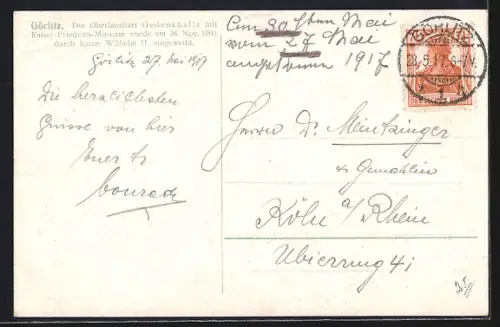 Görlitz. Die Oberlausitzer Gedenkhalle mit
Kaiser-Friedrich-Museum wurde am 28. Nov. 1902
durch Kaiser Wilhelm II. eingeweiht.
Görlitz 27 Mai 1917
Die herzlichsten
Grüsse von hier
Euer tr
Conrad
Am 30 ten Mai
vom 27 Mai
angekommen 1917
GÖRLITZ
28.5.17.6-7V.
* 1
Herrn Dr. Meintzinger
& Gemahlin
Köln a/Rhein
Ubierring 41